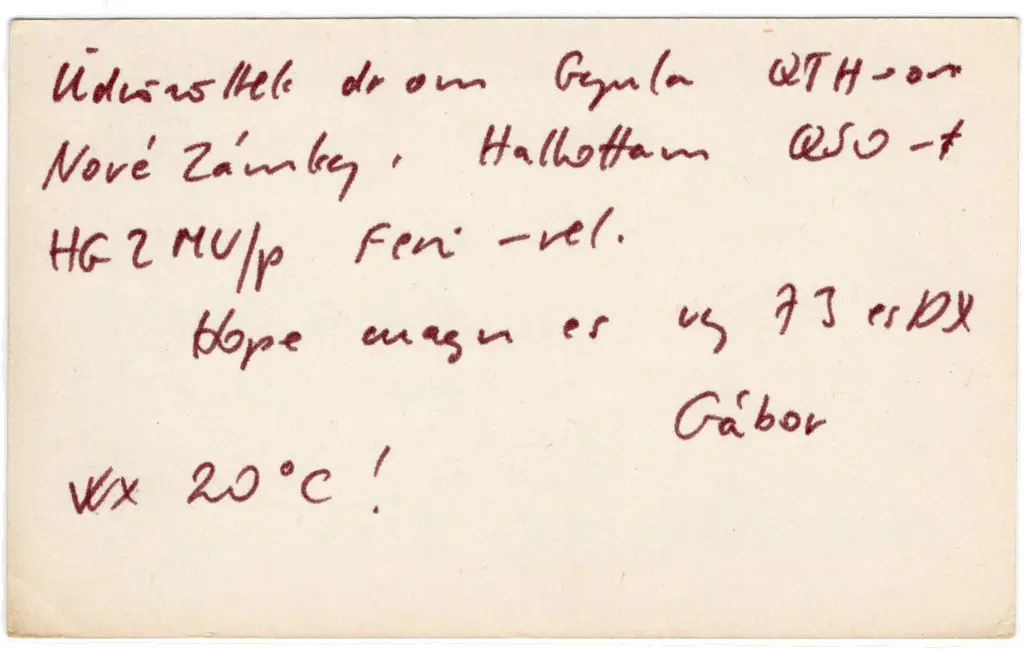 Üdvözöllek dr om Gyula QTH-on
Nové Zámky. Hallottam QSO-t
HG2MV/p Feri-vel.
Hope magn es vy 73 es DX
Gábor
Wx 20°C!